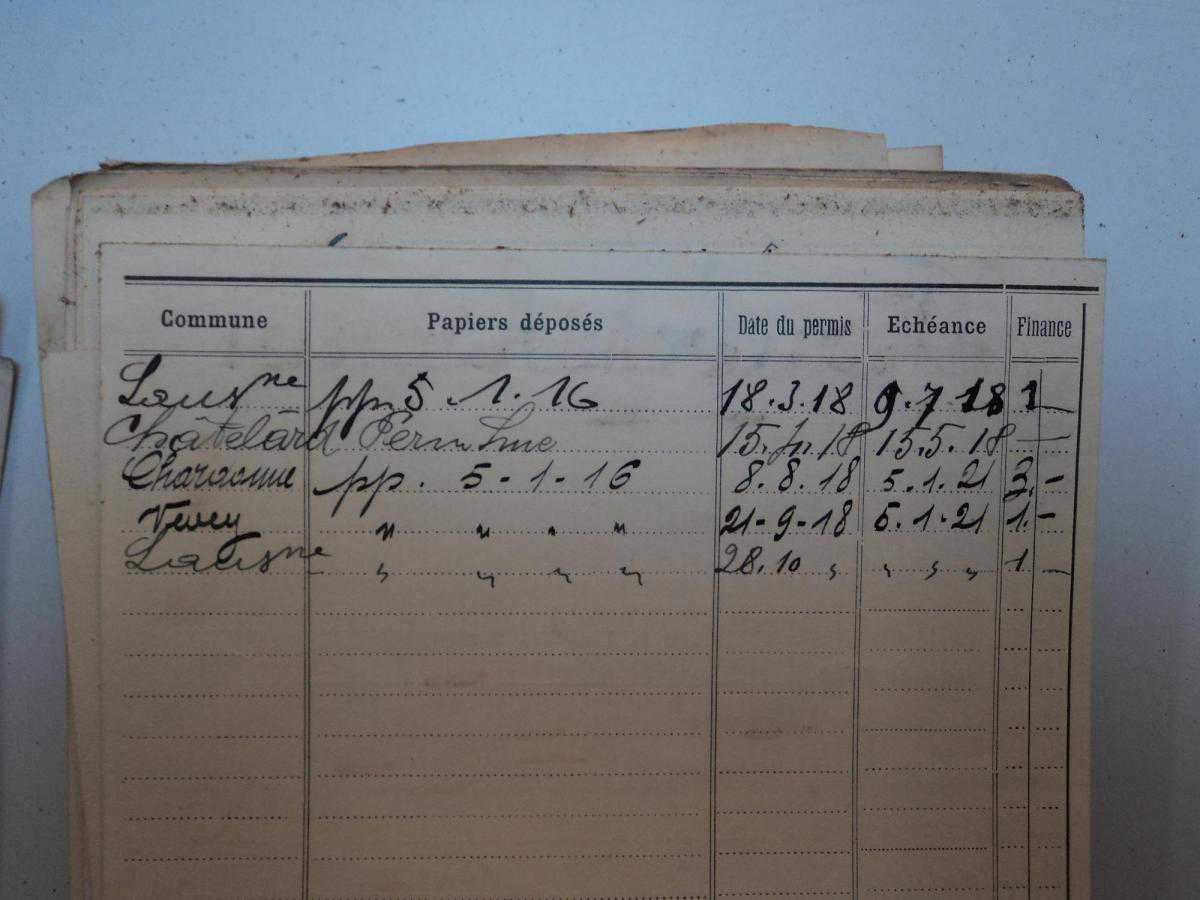 Commune Papiers déposés Date du permis Echéance Finance
Laus^ne pp. 5 . 1 . 16 18.3.18 9.7.18 1 —
Châtelard 15. .18 15.5.18 —
Chardonne pp. 5-1-16 8.8.18 5.1.21 3.-
Vevey " " " " 21-9-18 5.1.21 1.-
Laus^ne " " " " 28.10 " " " " 1 —